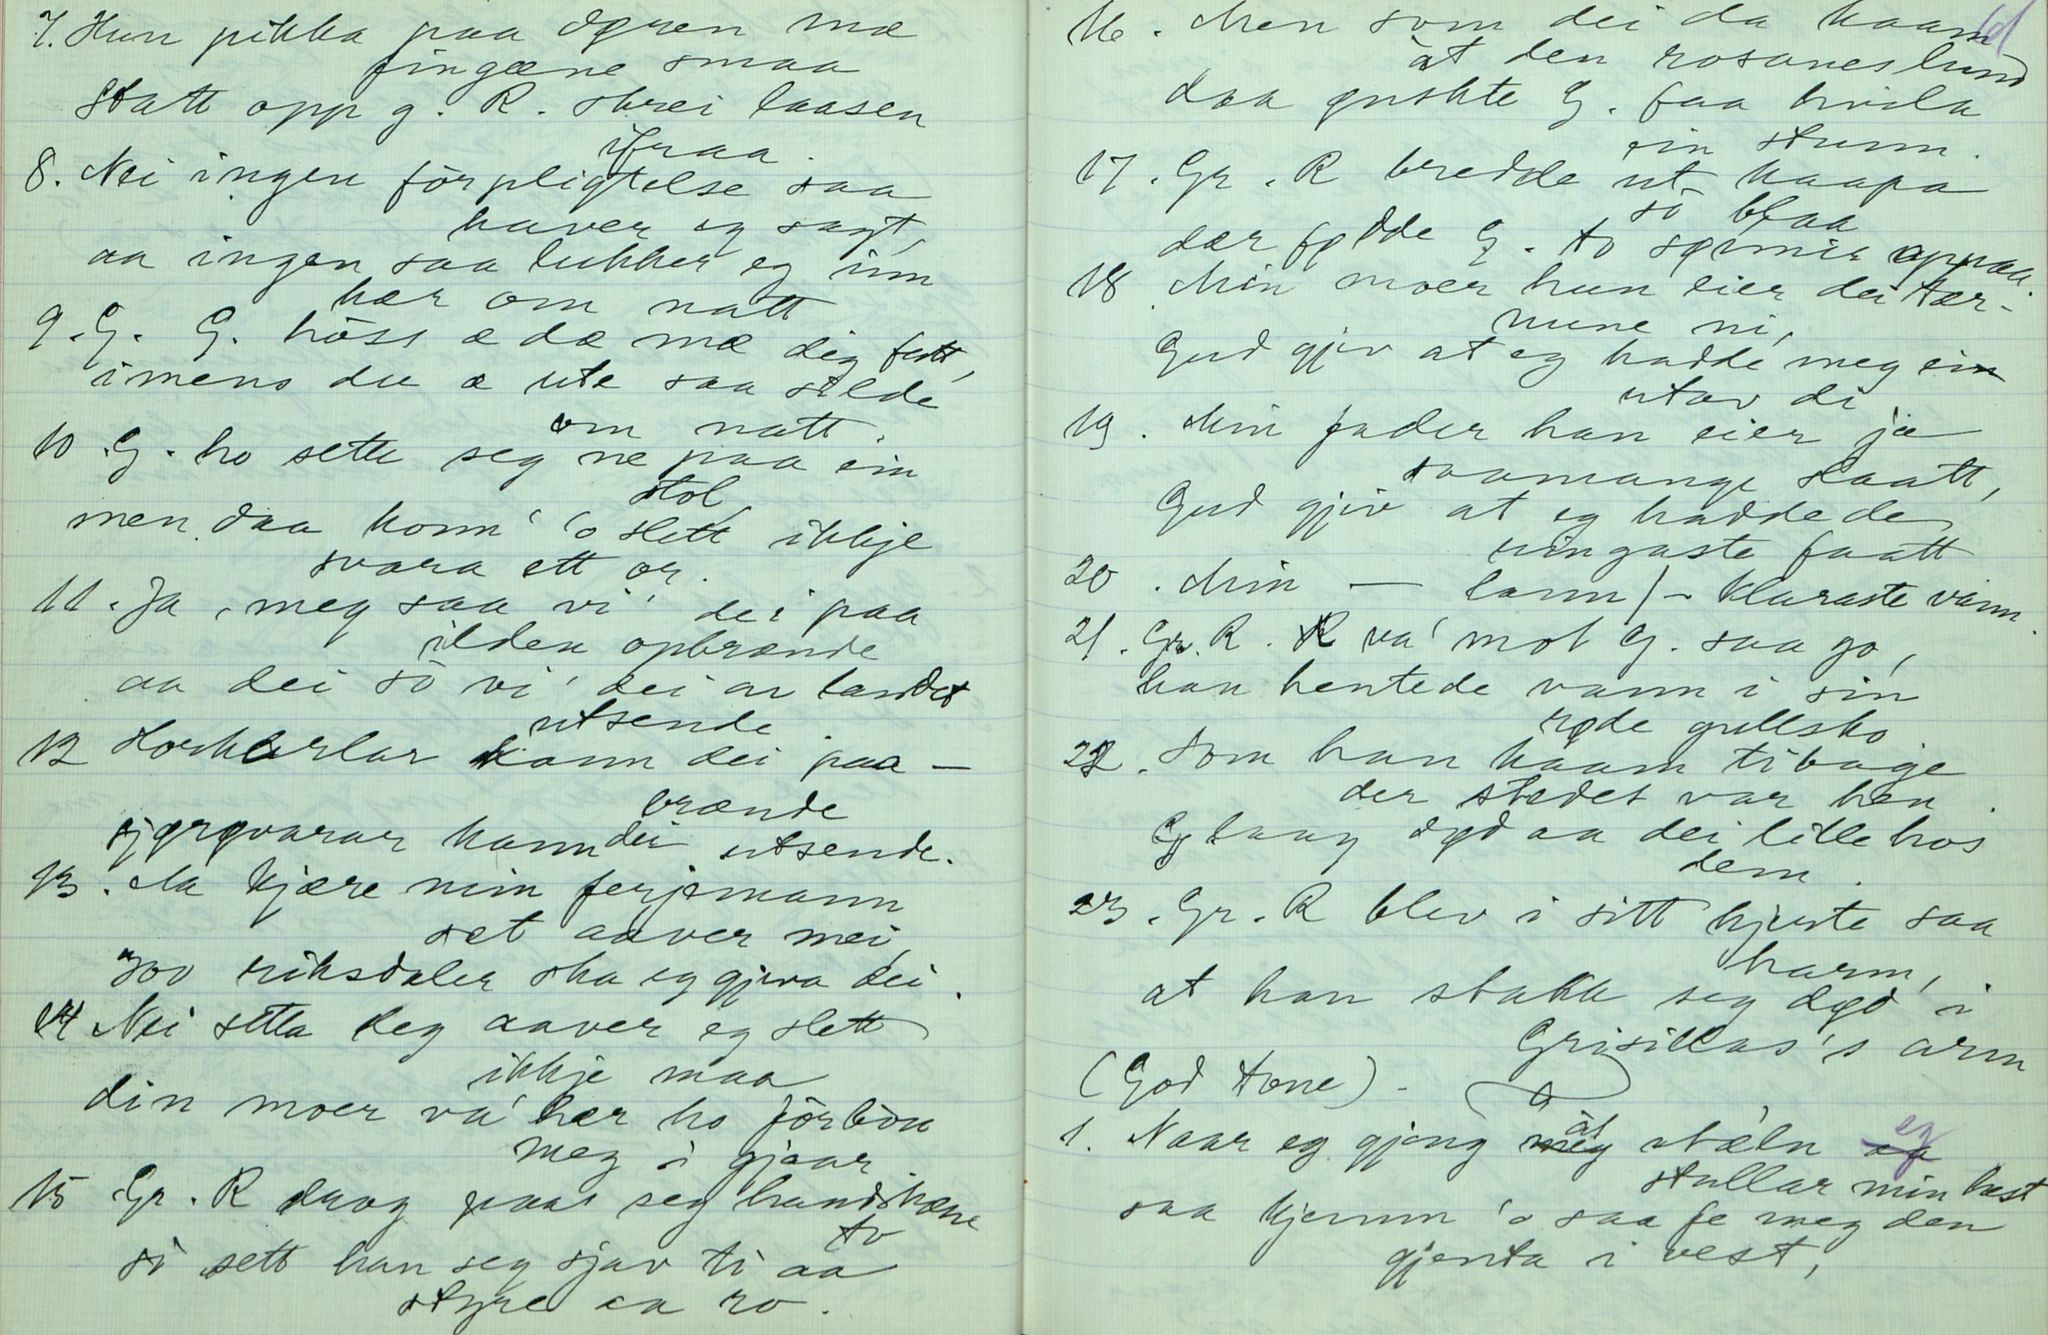 7. Hun pikka paa døren mæ
fingæne smaa
Statt opp g. R. skrei laasen
ifraa.
8. Nei ingen förpligtelse saa
haver eg sagt,
aa ingen saa lukker eg inn
hær om natt
9. G. G. hòss æ dæ mæ dig fatt,
imens du æ ute saa silde
om natt.
10. G. ho sette seg ne paa ein
stol,
men daa konn' 'o slett ikkje
svara ett or.
11. Ja, meg saa vi' dei paa
ilden opbrænde
aa dei sò vi' dei av landet
utsende
12 Horkarlar kann dei paa-
brænde
sjørøvarar kann dei utsende.
13. Aa kjære min ferjemann
set aaver mei,
300 riksdaler ska eg gjeva dei.
14 Nei setta deg aaver eg slett
ikkje maa
din moer va' hær ho förbòu
meg i gjaar.
15 Gr. R drog paa seg handskæne
to
sò sett han seg sjav ti aa
styre aa ro.
16. Men som dei da kaam
åt den rosaneslund
daa ønskte G. faa hvila
ein stunn.
17. Gr. R bredde ut kaapa
si blaa
dær fødde G. to sønnir oppaa.
18. Min moer hun eier dei tær-
nune ni,
Gud gjiv at eg hadde meg ein
utav di
19. Min fader han eier jæ
saamange slaatt,
Gud gjiv at eg hadde de
ringaste faatt
20. Min — lann/- klaraste vann.
21. Gr. R. va' mot G. saa go,
han hentede vann i sin
røde gullsko
22. Som han kaam tibage
der stedet var hen.
G laag død aa dei lille hos
dem.
23. Gr. R blev i sitt hjerte saa
harm,
at han stakk seg død i
Grisillas's arm
(God tone).
1. Naar eg gjeng åt stæln eg
stullar min hest
saa kjemm 'o saa fe meg den
gjenta i vest,